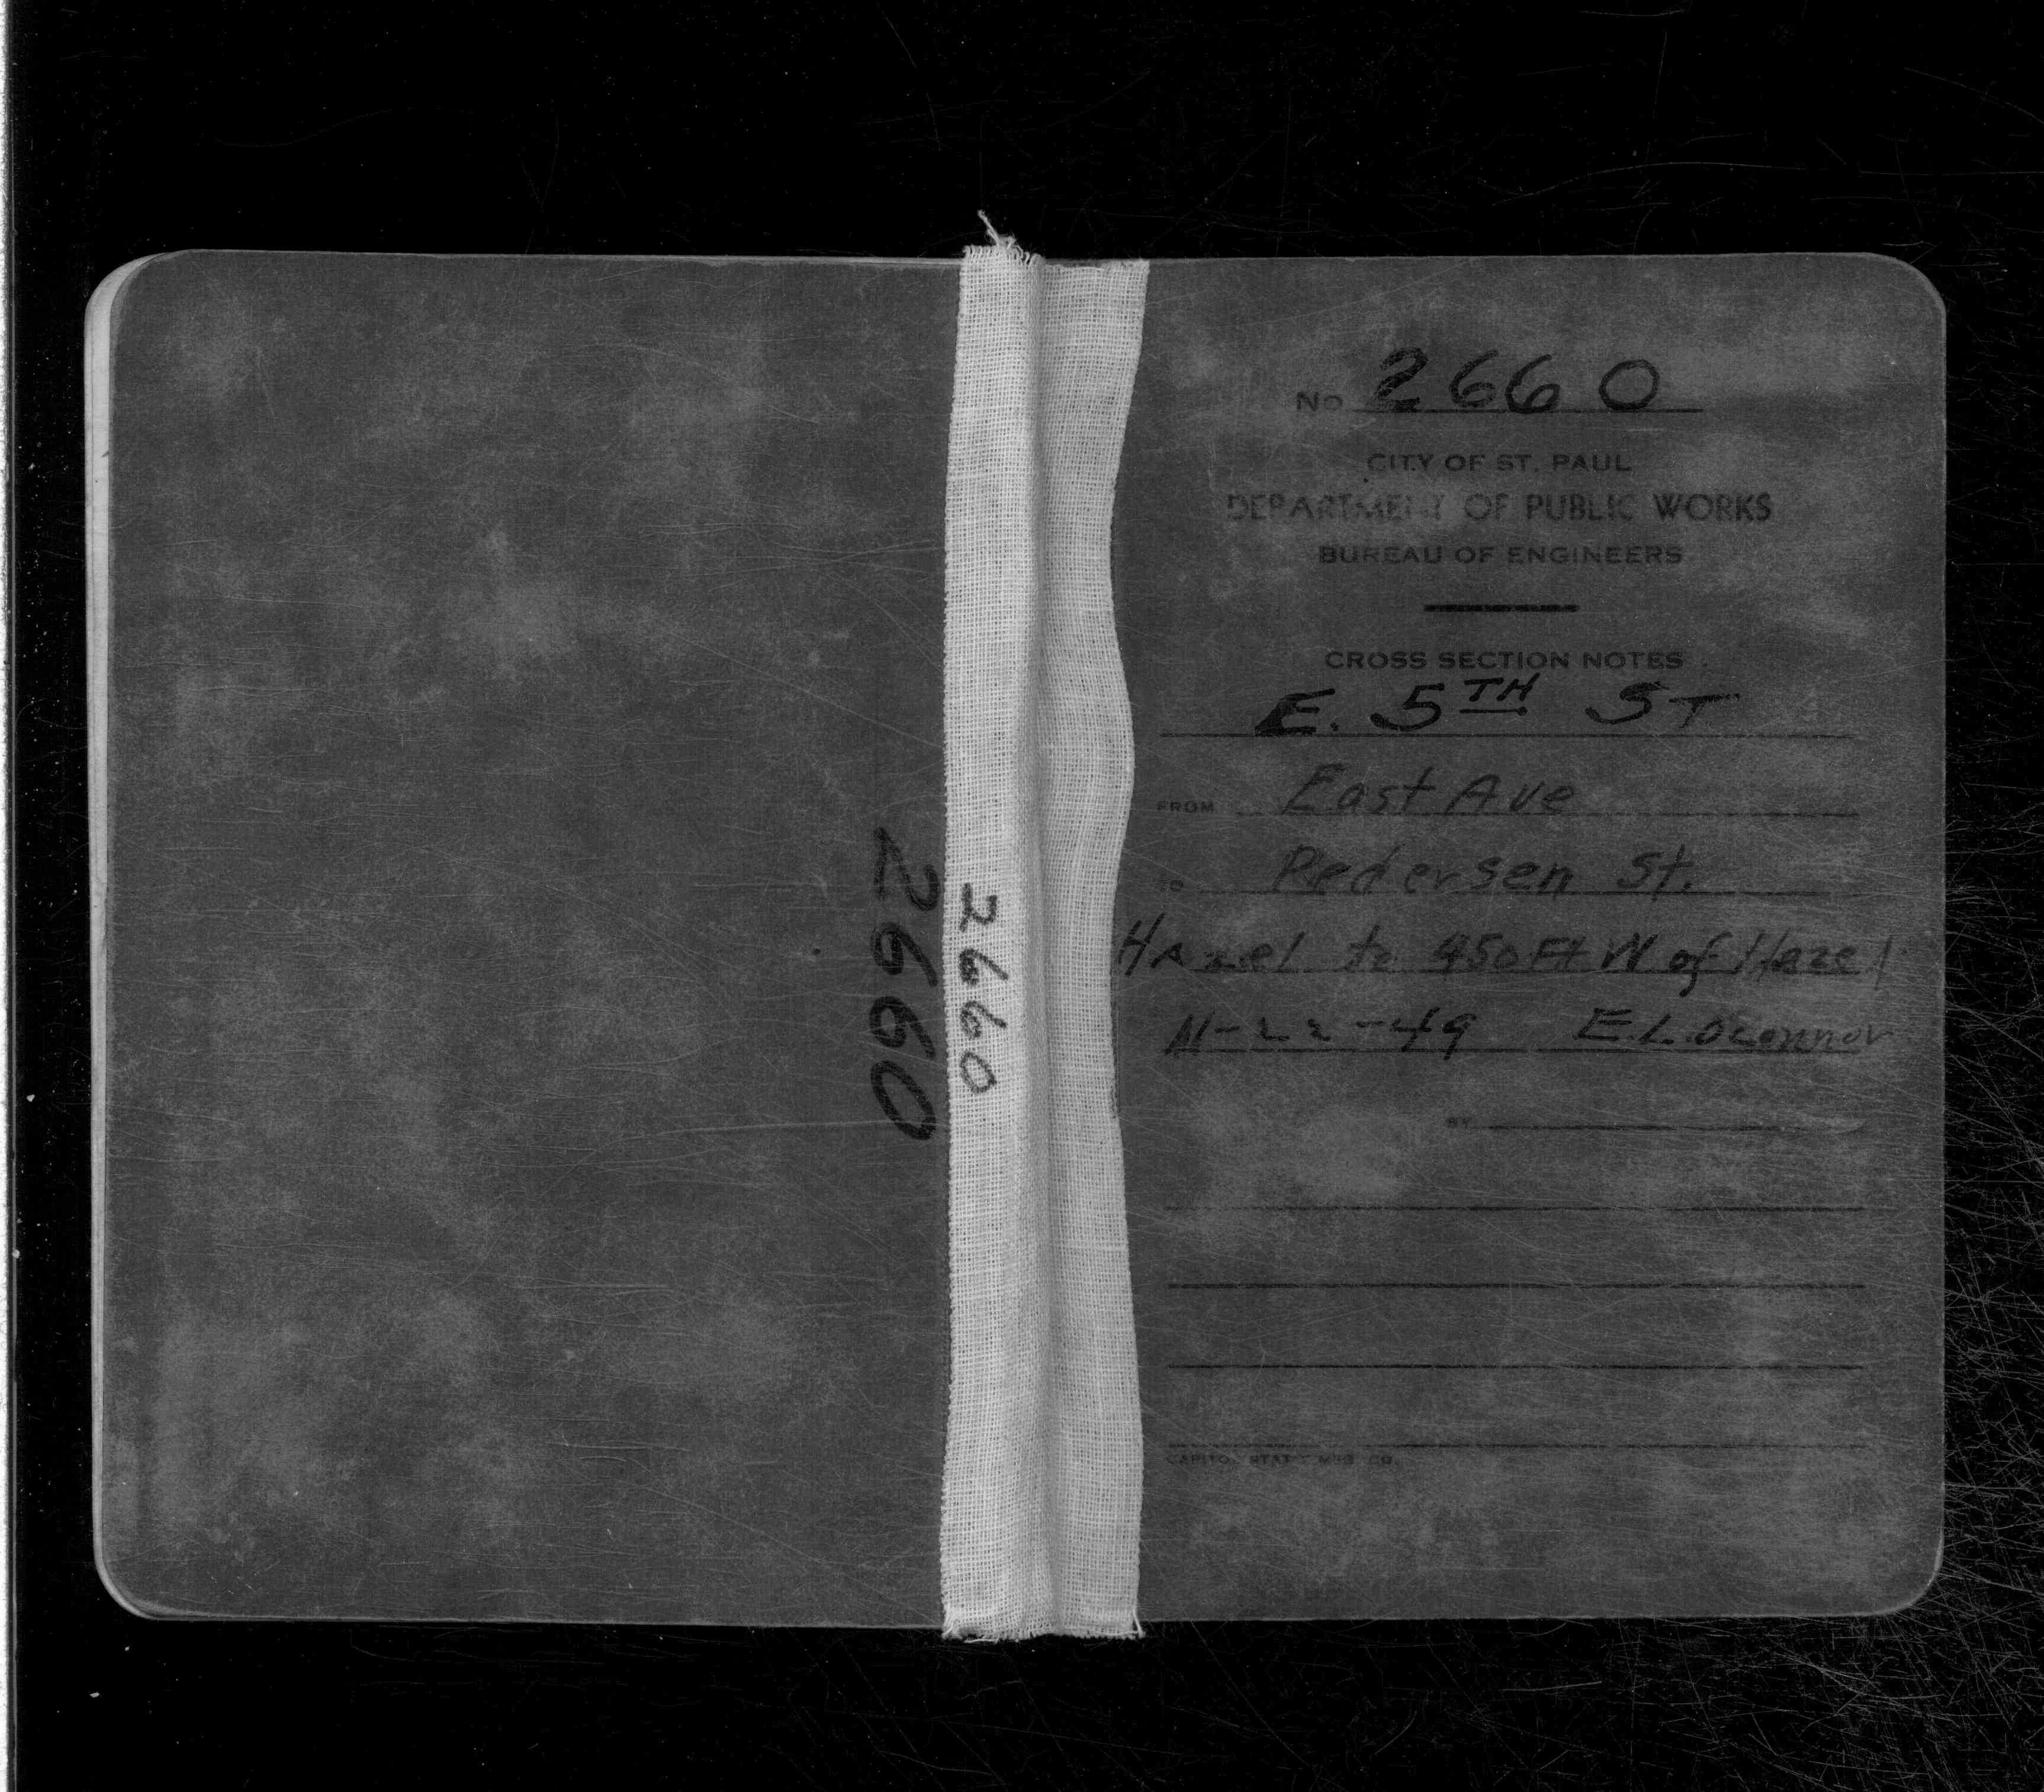 2660
2660
No 2660
CITY OF ST. PAUL
DEPARTMENT OF PUBLIC WORKS
BUREAU OF ENGINEERS
CROSS SECTION NOTES
E. 5TH ST
FROM East Ave
TO Pedersen St.
Hazel to 450 Ft W of Hazel
11-22-49 E.L. O'Connor
BY
CAPITOL STAT'Y MFG. CO.